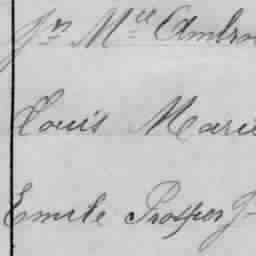 Jn Mel Ambro
Louis Marie
Emile Prosper J-